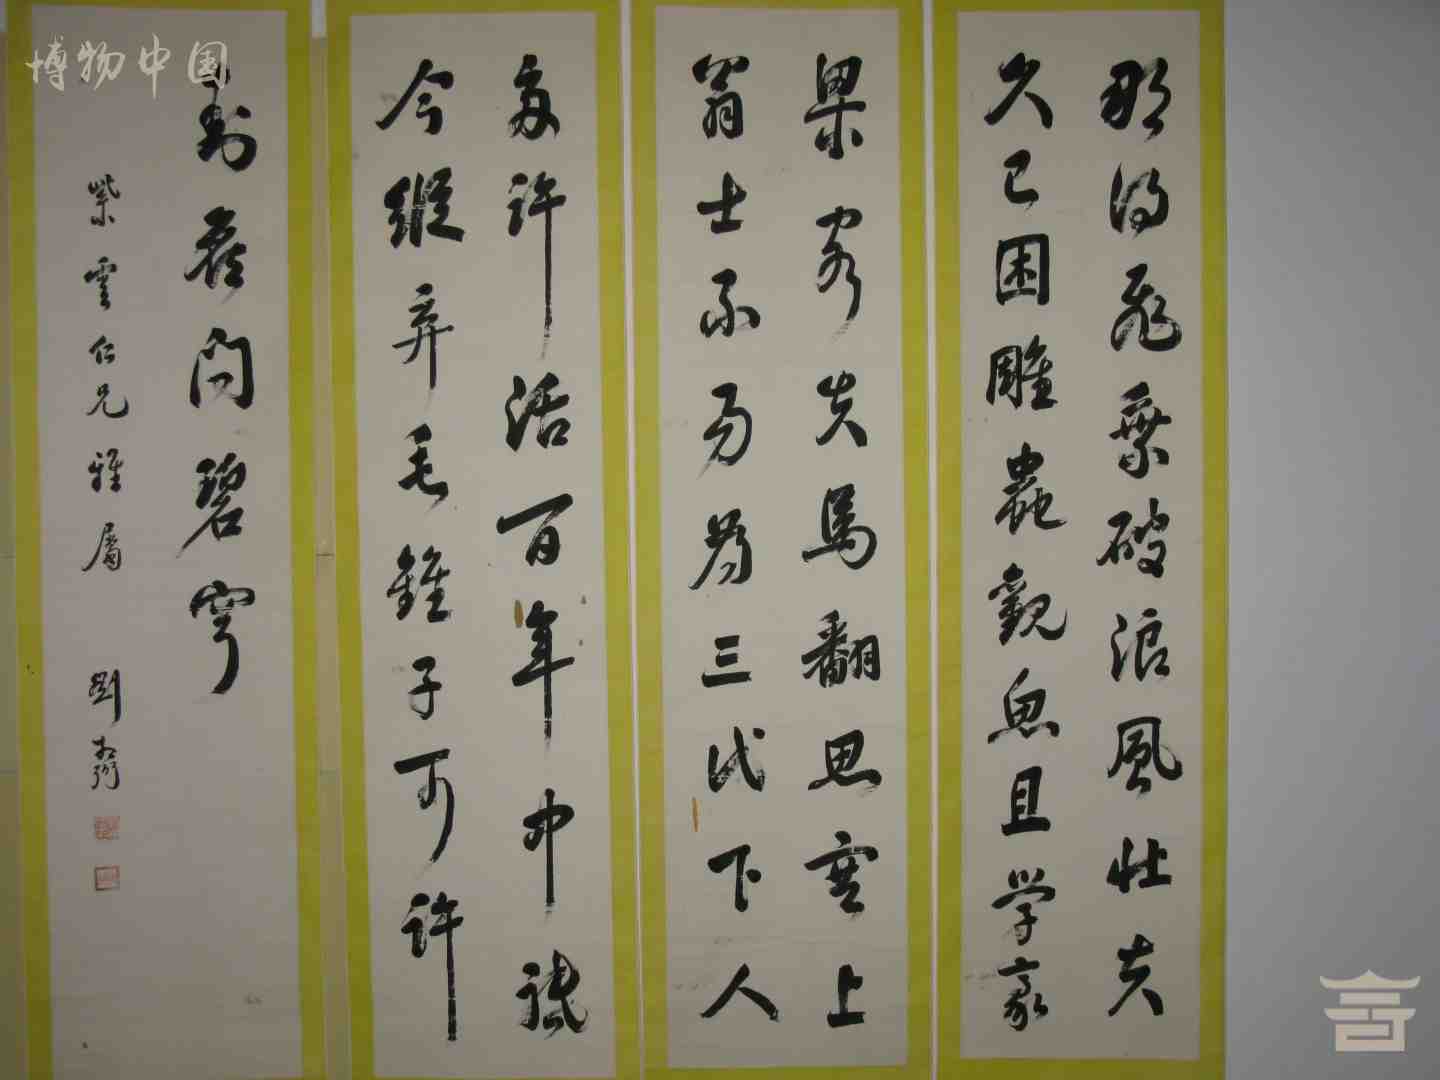 那得飛乘破浪風壯夫
久已困雕蟲觀魚且学豪
梁客失馬翻思塞上
翁士不易為三代下人
多許活百年中
今縱弃毛錐子可許
封侯問碧穹
紫雲仁兄雅屬 劉
博物中国